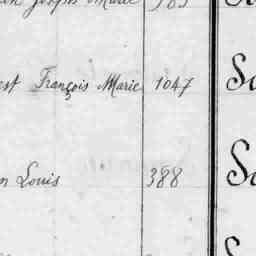 Joseph Marie 585
est François Marie 1047 Sa
n Louis 388 Sa